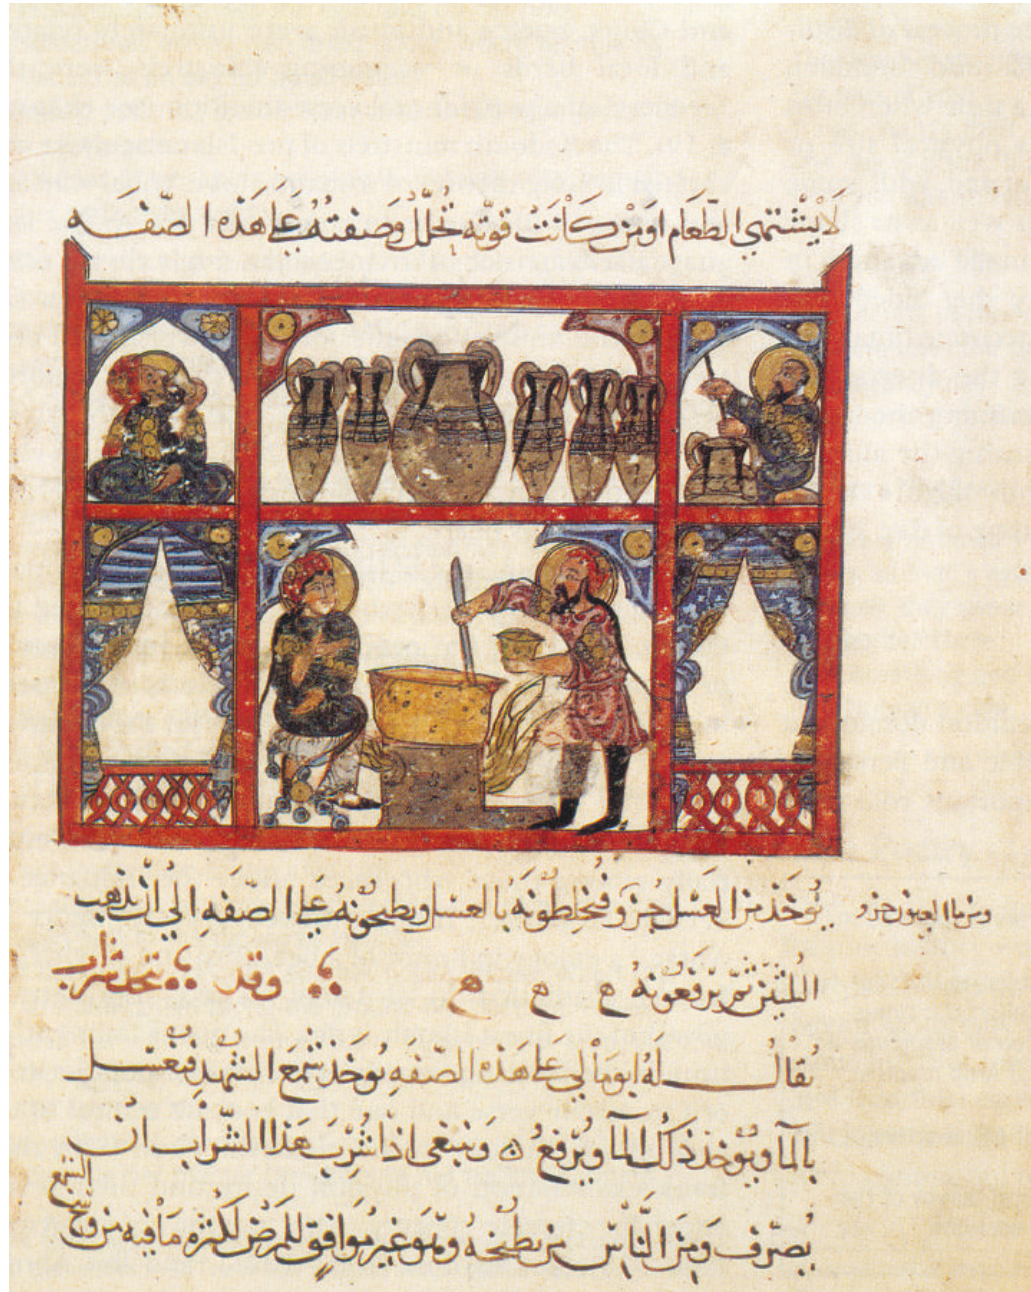 لا يشتهي الطعام او من كانت قوته تحلل وصنعته على هذه الصفه
يوخذ من العسل جزو فيخلطونه بالعسل ويطبخونه على الصفه الي ان يذهب
ومن ما العيون جزو
الثلثين ثم يرفعونه ح ح ح وقد يتخذ شراب
يقال له ابومالي على هذه الصفه يوخذ شمع الشهد فيغسل
بالما ويوخذ ذلك الما ويرفع ه وينبغي اذا شرب هذا الشراب ان
يصرف ومن الناس من يطبخه وهو غير موافق للمرض لكثره ما فيه من وسخ
الشمع